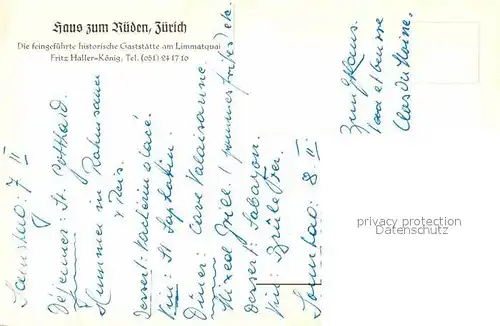 Haus zum Rüden, Zürich
Die feingeführte historische Gaststätte am Limmatquai
Fritz Haller-König, Tel. (051) 24 17 16
Samstag: 7 II
Déjeuner: St. Gotthard.
Hummer in Rahmsauce
& Reis.
Dessert: Vacherin glacé.
Vin: St Saphorin.
Diner: Cave Valaisanne.
Mixed Grill (pommes frites) etc.
Dessert: Sabayon.
Vin:
Sonntag: 8. II
Zunfthaus
privacy protection
Datenschutz